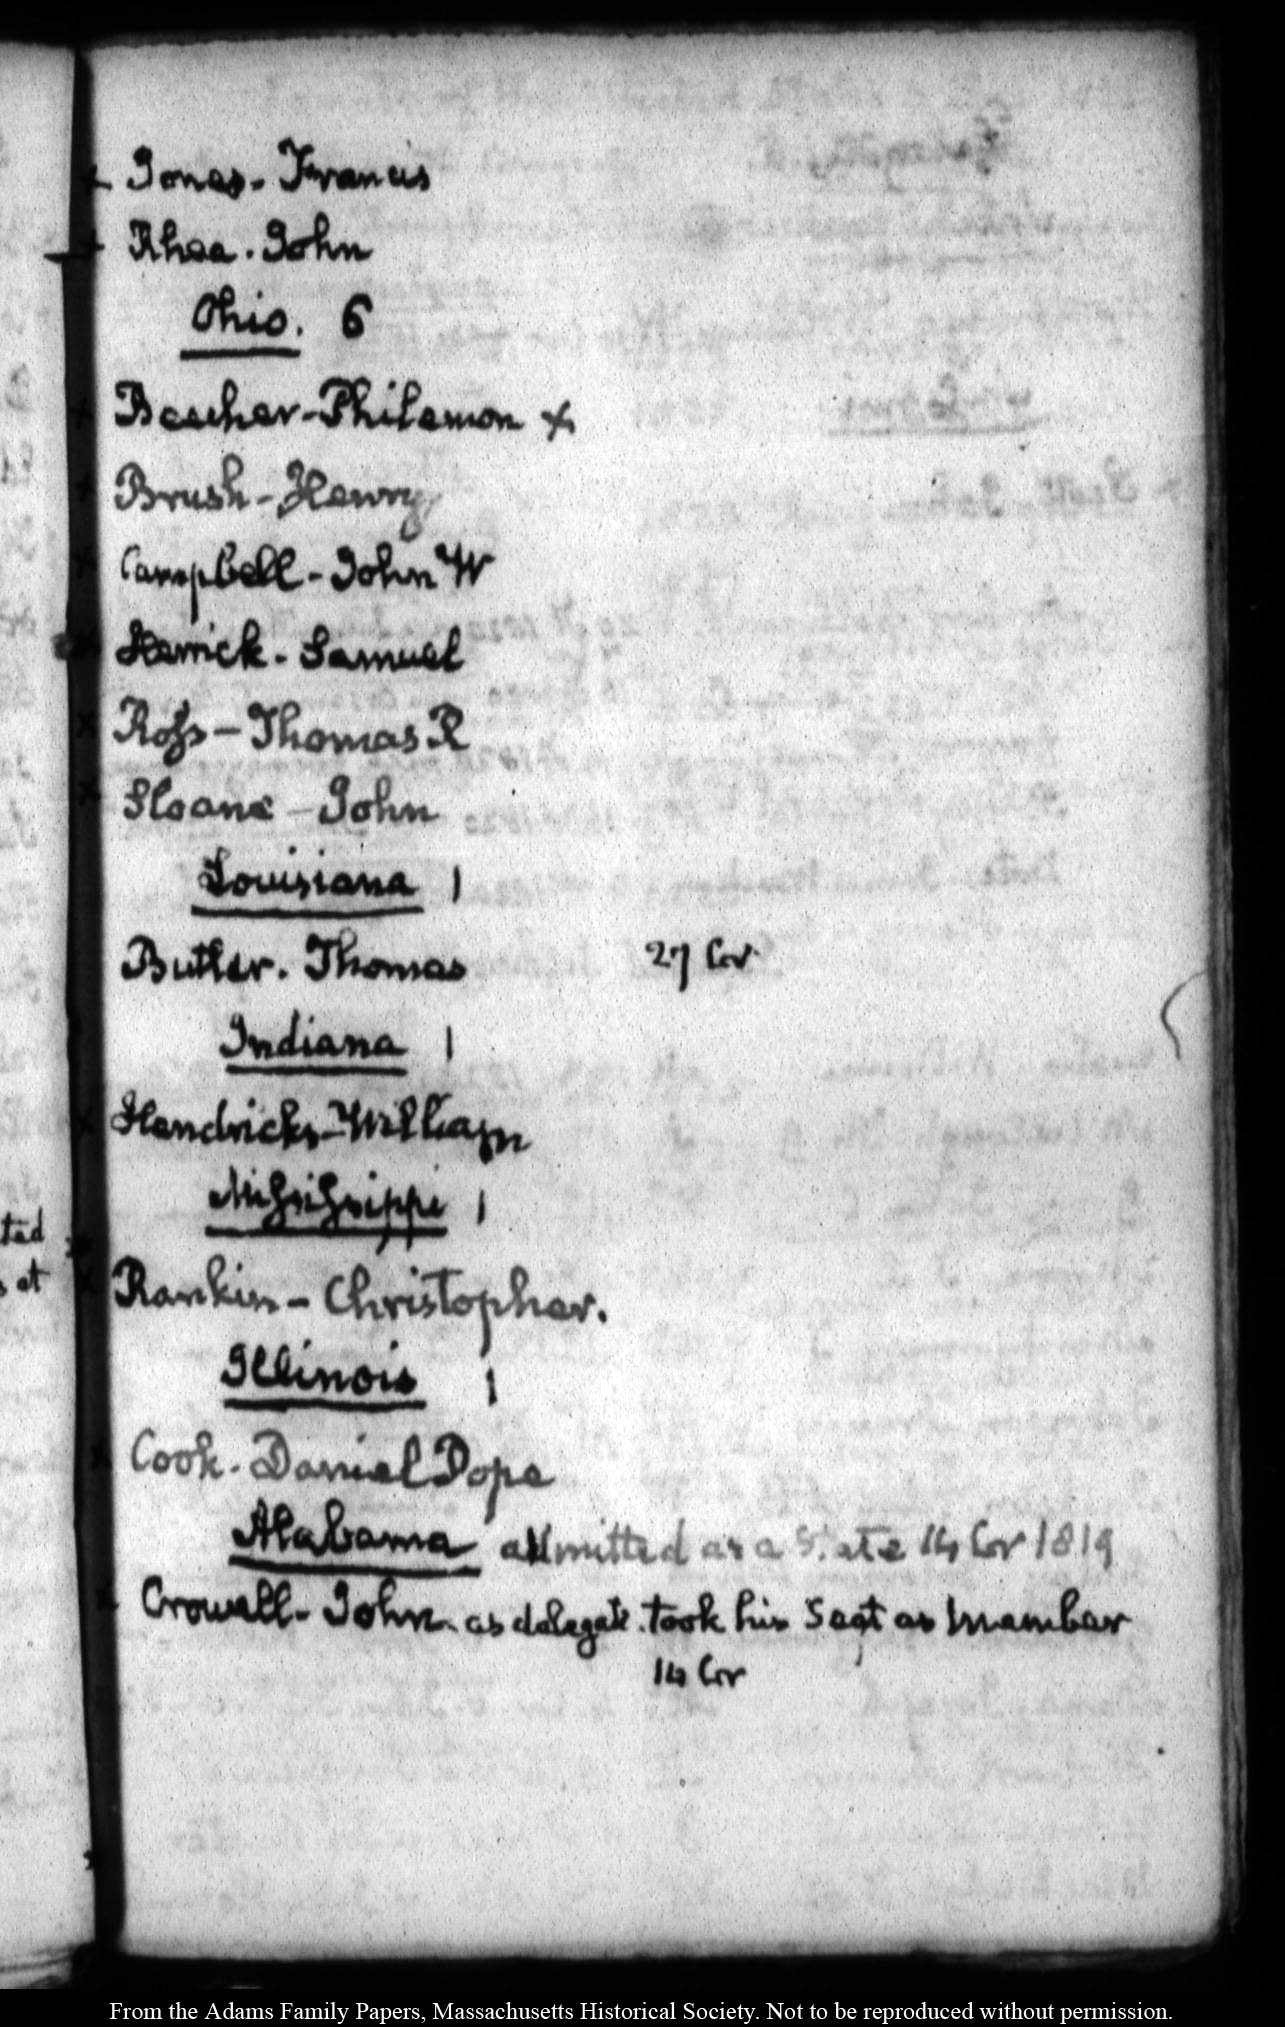 x Jones - Francis
x Rhea - John
Ohio. 6
x Beecher - Philemon x
x Brush - Henry
x Campbell - John W
x Herrick - Samuel
x Roſs - Thomas R
x Sloane - John
Louisiana 1
Butler. Thomas 27 Cor
Indiana 1
x Hendricks - William
Miſsiſsippi 1
x Rankin - Christopher.
Illinois 1
x Cook. Daniel Pope
Alabama admitted as a State 14 Cor 1819
x Crowell - John. as delegate. took his Seat as Member
14 Cor
ted
at
From the Adams Family Papers, Massachusetts Historical Society. Not to be reproduced without permission.